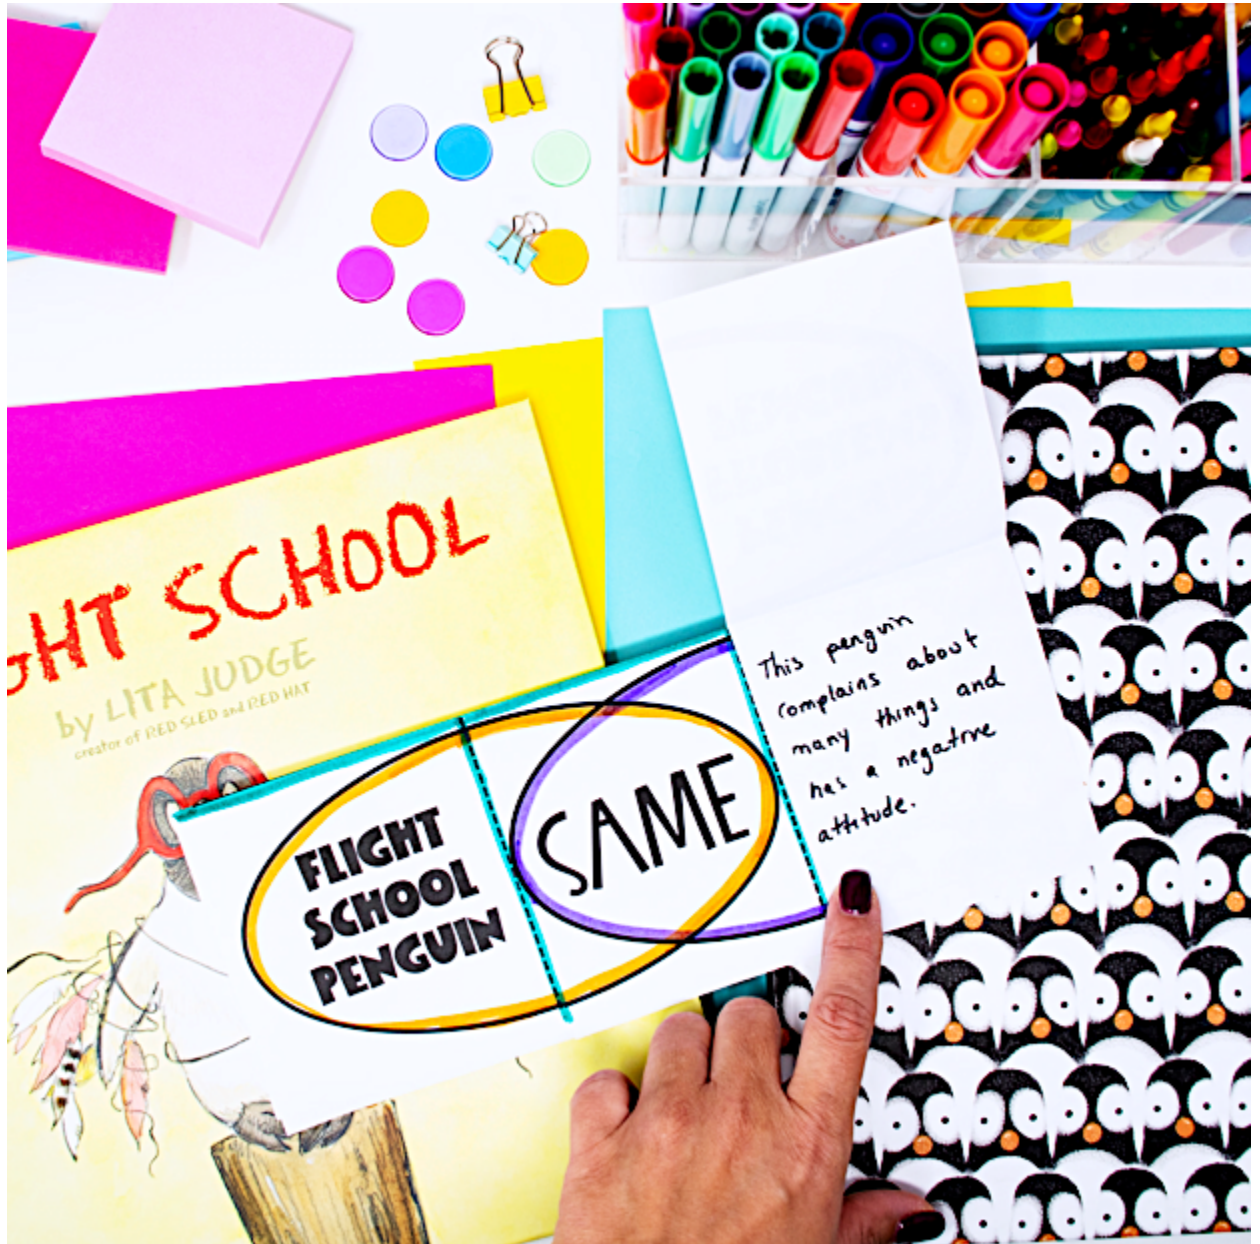 GHT SCHOOL
by LITA JUDGE
creator of RED SLED and RED HAT
FLIGHT
SCHOOL
PENGUIN
SAME
This penguin
complains about
many things and
has a negative
attitude.